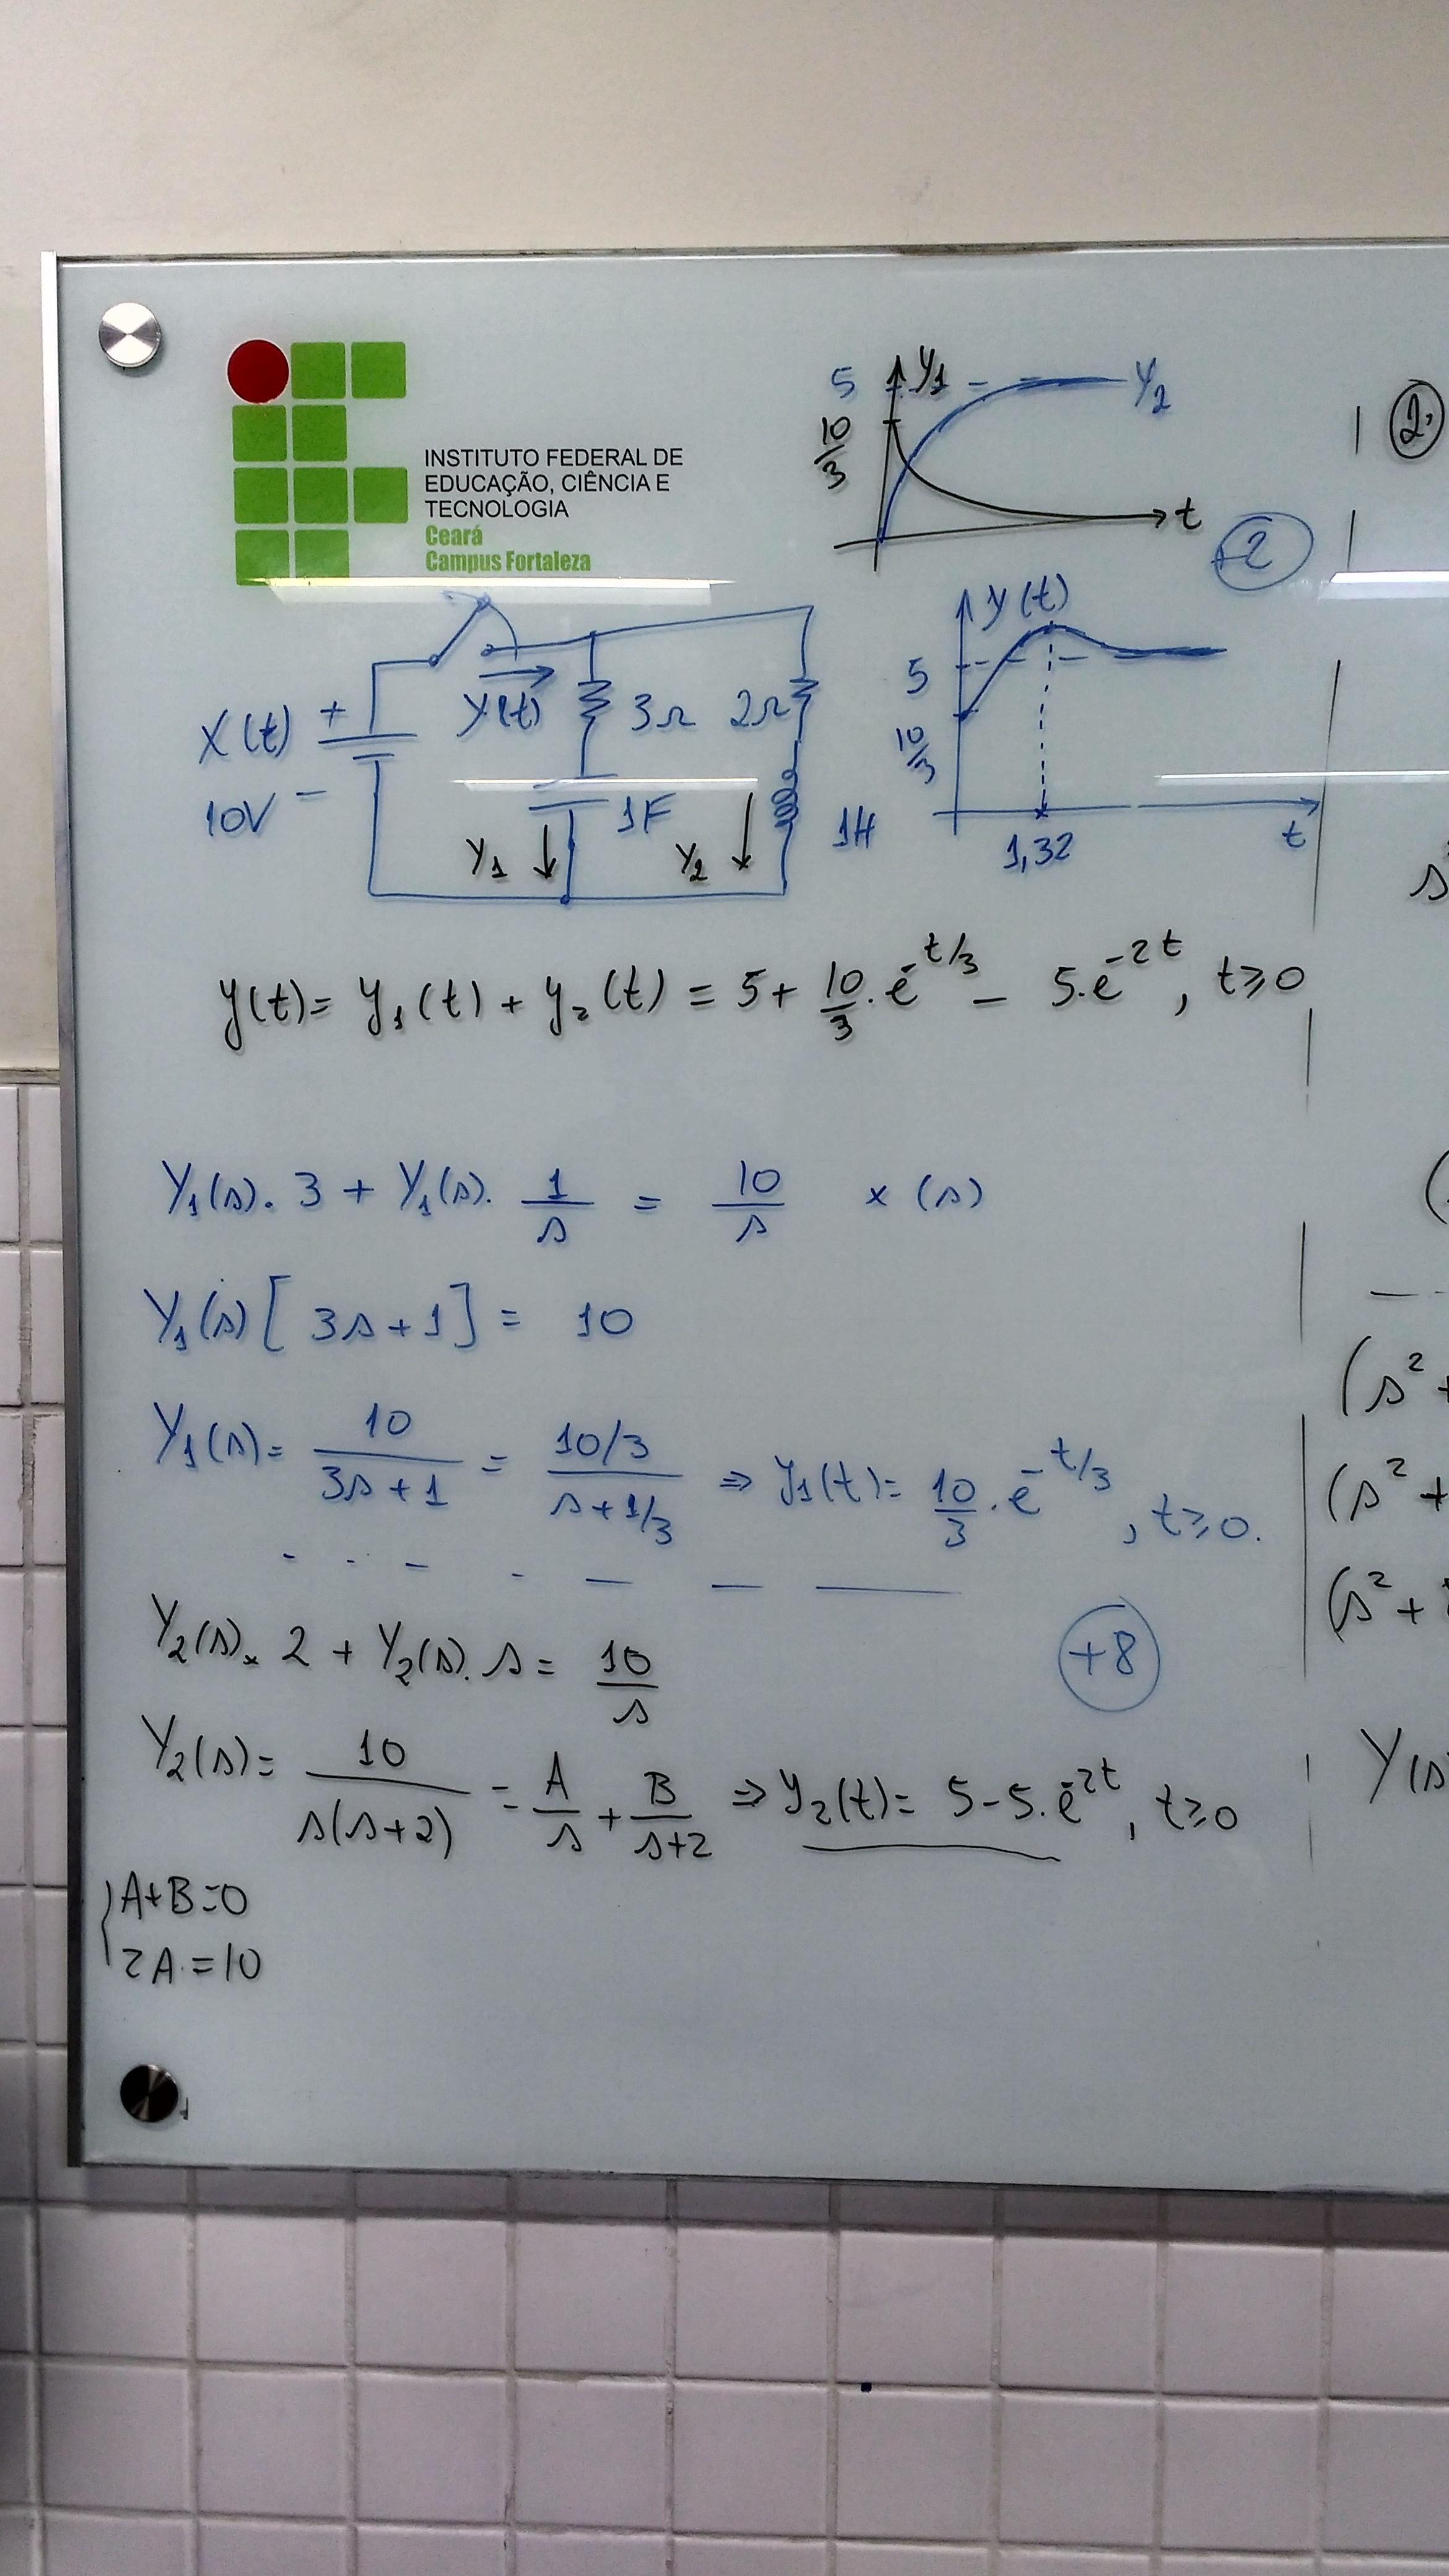 INSTITUTO FEDERAL DE
EDUCAÇÃO, CIÊNCIA E
TECNOLOGIA
Ceará
Campus Fortaleza
5 y₁ y₂
10/3
t
+2
2.
x(t) + −
10V
y(t)
3Ω 2Ω
1F 1H
y₁ y₂
y(t)
5
10/3
1,32 t
y(t) = y₁(t) + y₂(t) = 5 + 10/3 . e^(-t/3) − 5.e^(-2t), t≥0
Y₁(s). 3 + Y₁(s). 1/s = 10/s × (s)
Y₁(s)[3s+1] = 10
Y₁(s) = 10/(3s+1) = (10/3)/(s+1/3) ⇒ y₁(t) = 10/3 . e^(-t/3), t≥0.
Y₂(s). 2 + Y₂(s). s = 10/s
+8
Y₂(s) = 10/(s(s+2)) = A/s + B/(s+2) ⇒ y₂(t) = 5−5.e^(-2t), t≥0
{A+B=0
2A=10
s
(
(s²+
(s²+
(s²+
Y(s